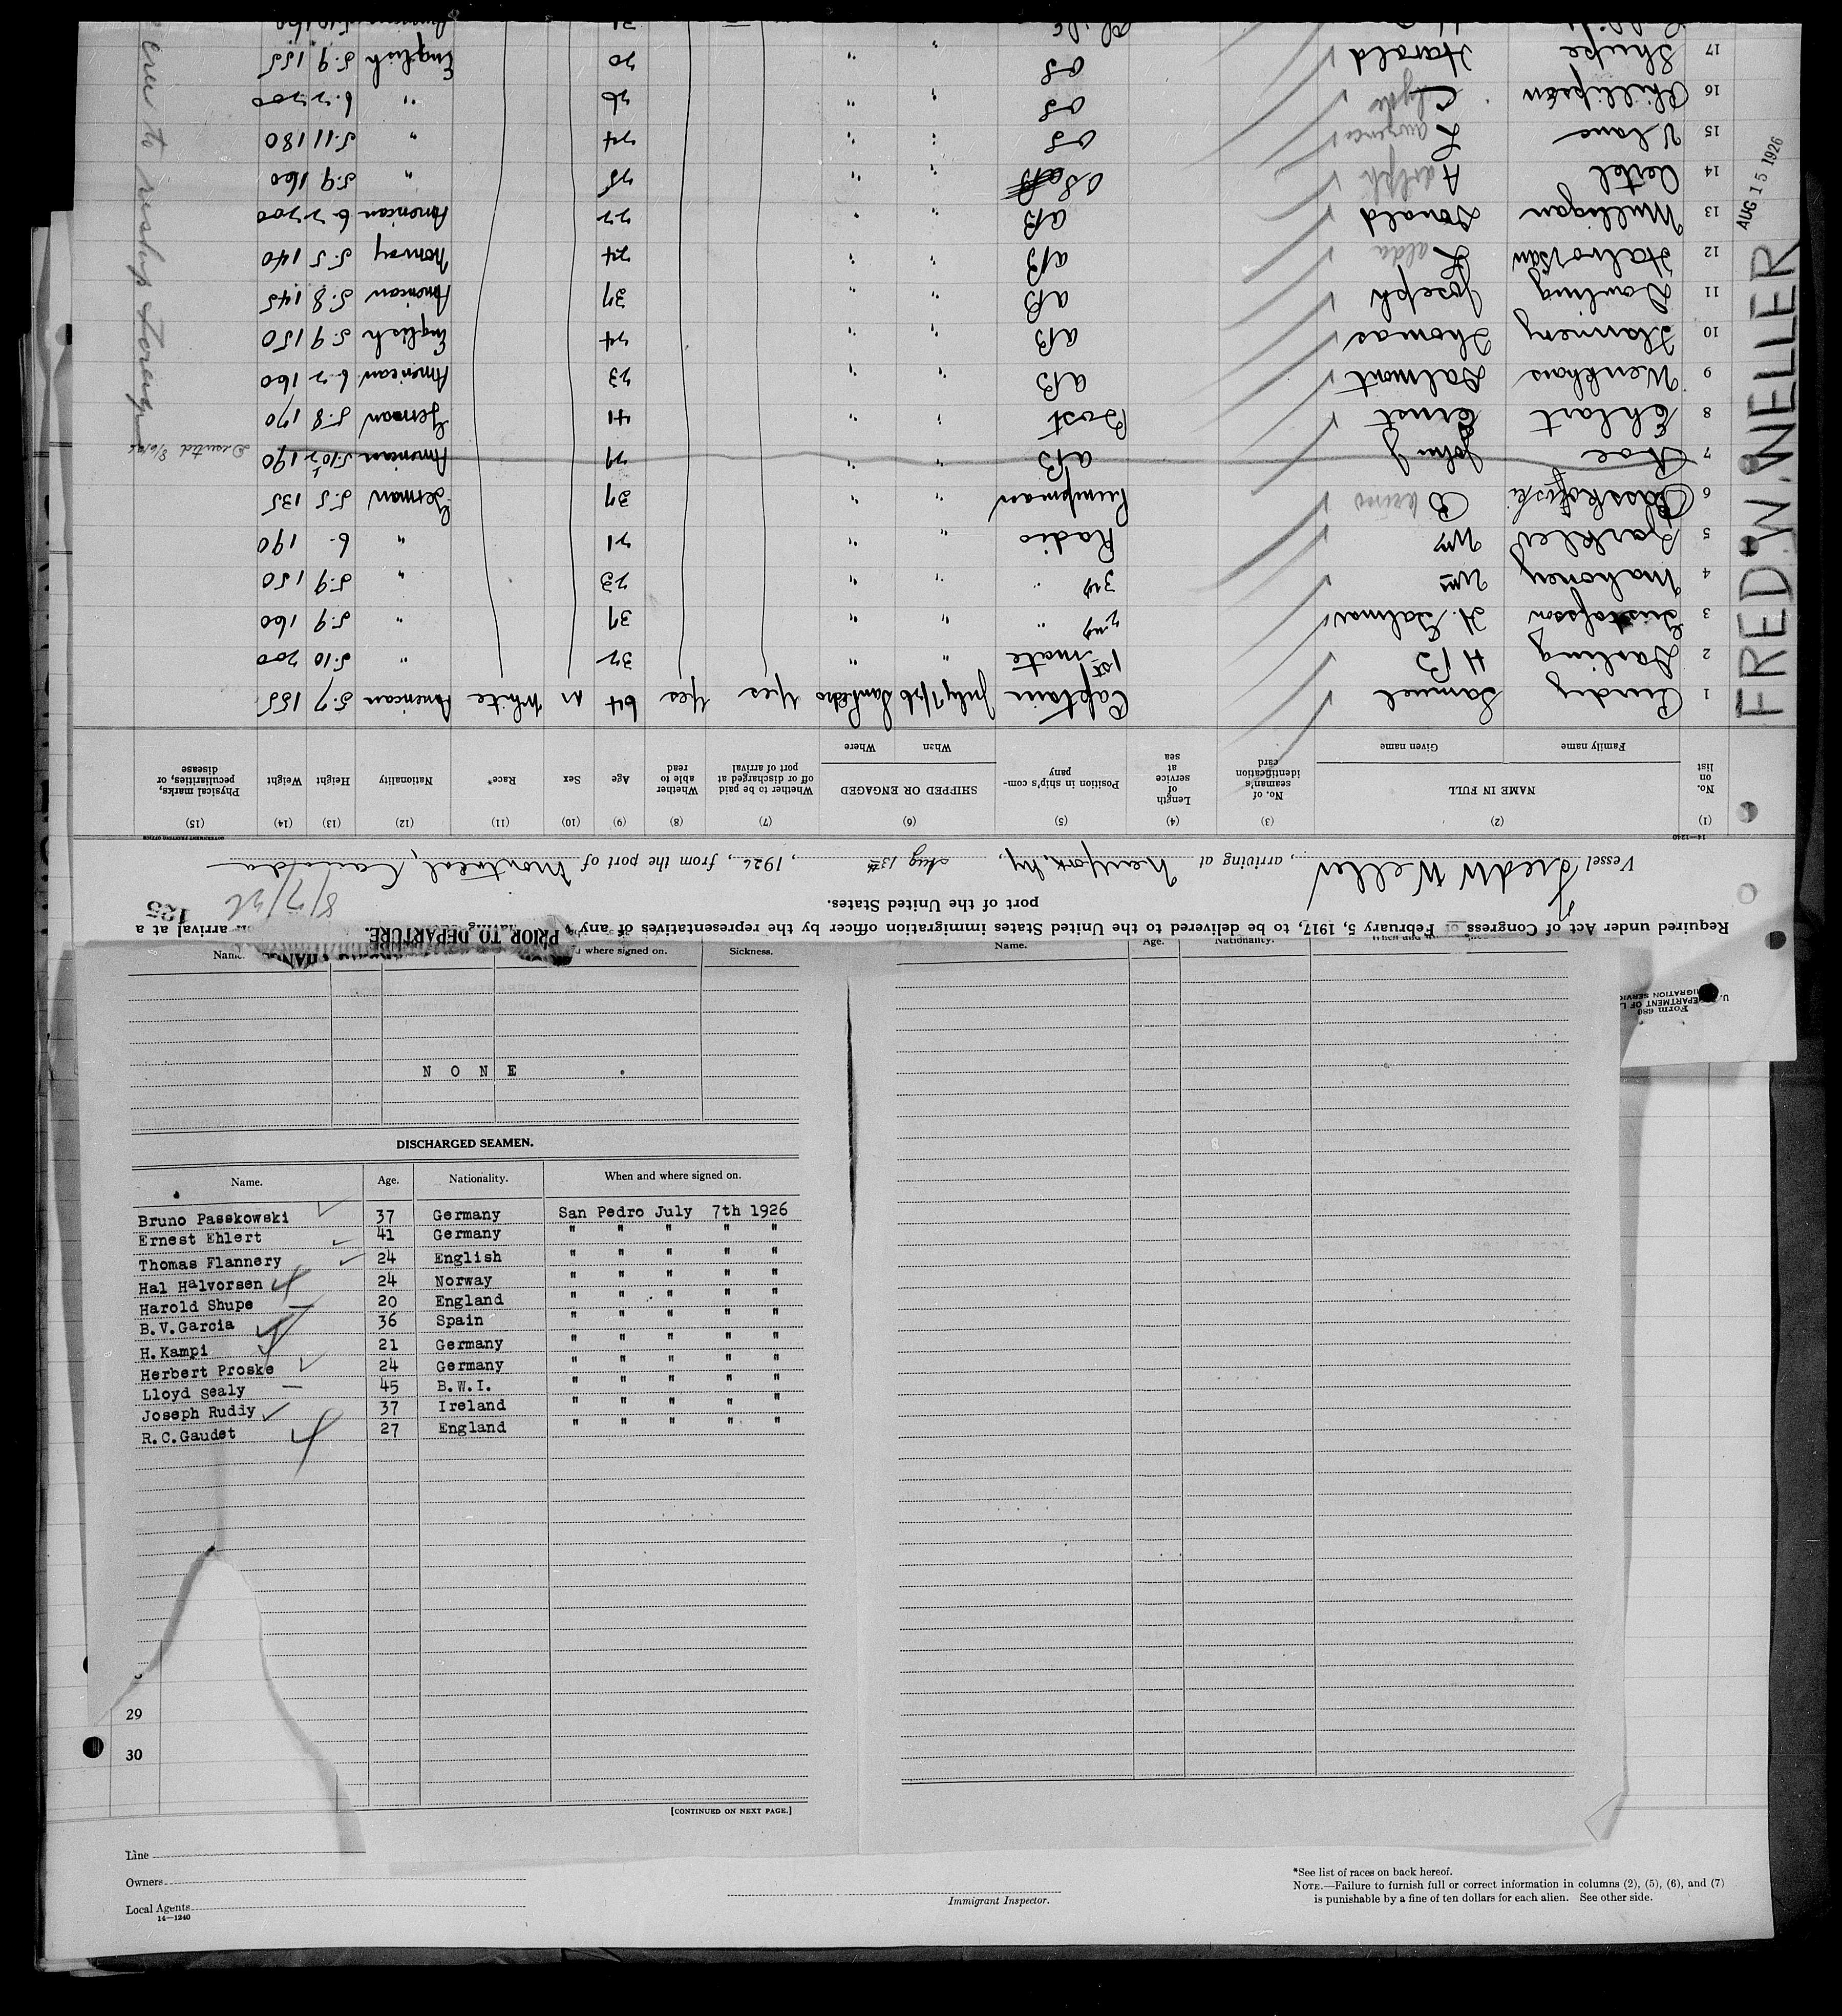 FRED W. WELLER
AUG 15 1926
Form 680
Required under Act of Congress of February 5, 1917, to be delivered to the United States immigration officer by the representatives of any
arrival at a
port of the United States.
125
8/7/26
Vessel Fred W Weller, arriving at New York, Ny, Aug 13th, 1926, from the port of Montreal, Canada
14—1240
GOVERNMENT PRINTING OFFICE
(1) (2) (3) (4) (5) (6) (7) (8) (9) (10) (11) (12) (13) (14) (15)
No. on list NAME IN FULL No. of seaman's identification card Length of service at sea Position in ship's company SHIPPED OR ENGAGED Whether to be paid off or discharged at port of arrival Whether able to read Age Sex Race* Nationality Height Weight Physical marks, peculiarities, or disease
Family name Given name When Where
1 Samuel Captain July 7/26 San Pedro Yes Yes 64 M White American 5.7 155
2 Darling H B 1st mate " " 32 " 5.10 200
3 Gustafson H. Halmar 2nd " " " 37 " 5.9 160
4 Mahoney Wm 3rd " " " 23 " 5.9 150
5 Wm Radio " " 21 " 6. 190
6 Passkowski Bruno Pumpman " " 37 German 5.5 135
7 John J aB " " American 5.10½ 190 Deserted
8 Ehlart Ernst Bost " " 41 German 5.8 170
9 Dalmont aB " " 23 American 6.2 160
10 Flannery Thomas aB " " 24 English 5.9 150
11 Dowling Joseph aB " " 37 American 5.8 145
12 Halvorsan aB " " 24 Norway 5.5 140
13 Mulligan Donald aB " " 22 American 6.2 200
14 Oertel Adolph OS " " 25 " 5.9 160
15 Lawrence OS " " 24 " 5.11 180
16 Phillipson Clyde OS " " 26 " 6.2 200
17 Shupe Harold OS " " 20 English 5.9 155
crew to reship foreign
PRIOR TO DEPARTURE.
where signed on. Sickness.
Name. Age. Nationality.
NONE
DISCHARGED SEAMEN.
Name. Age. Nationality. When and where signed on.
Bruno Passkowski 37 Germany San Pedro July 7th 1926
Ernest Ehlert 41 Germany " " " " "
Thomas Flannery 24 English " " " " "
Hal Halvorsen 24 Norway " " " " "
Harold Shupe 20 England " " " " "
B.V.Garcia 36 Spain " " " " "
H.Kampi 21 Germany " " " " "
Herbert Proske 24 Germany " " " " "
Lloyd Sealy 45 B.W.I. " " " " "
Joseph Ruddy 37 Ireland " " " " "
R.C.Gaudet 27 England " " " " "
29
30
[CONTINUED ON NEXT PAGE.]
Line
Owners
Local Agents
14—1240
Immigrant Inspector.
*See list of races on back hereof.
NOTE.—Failure to furnish full or correct information in columns (2), (5), (6), and (7)
is punishable by a fine of ten dollars for each alien. See other side.